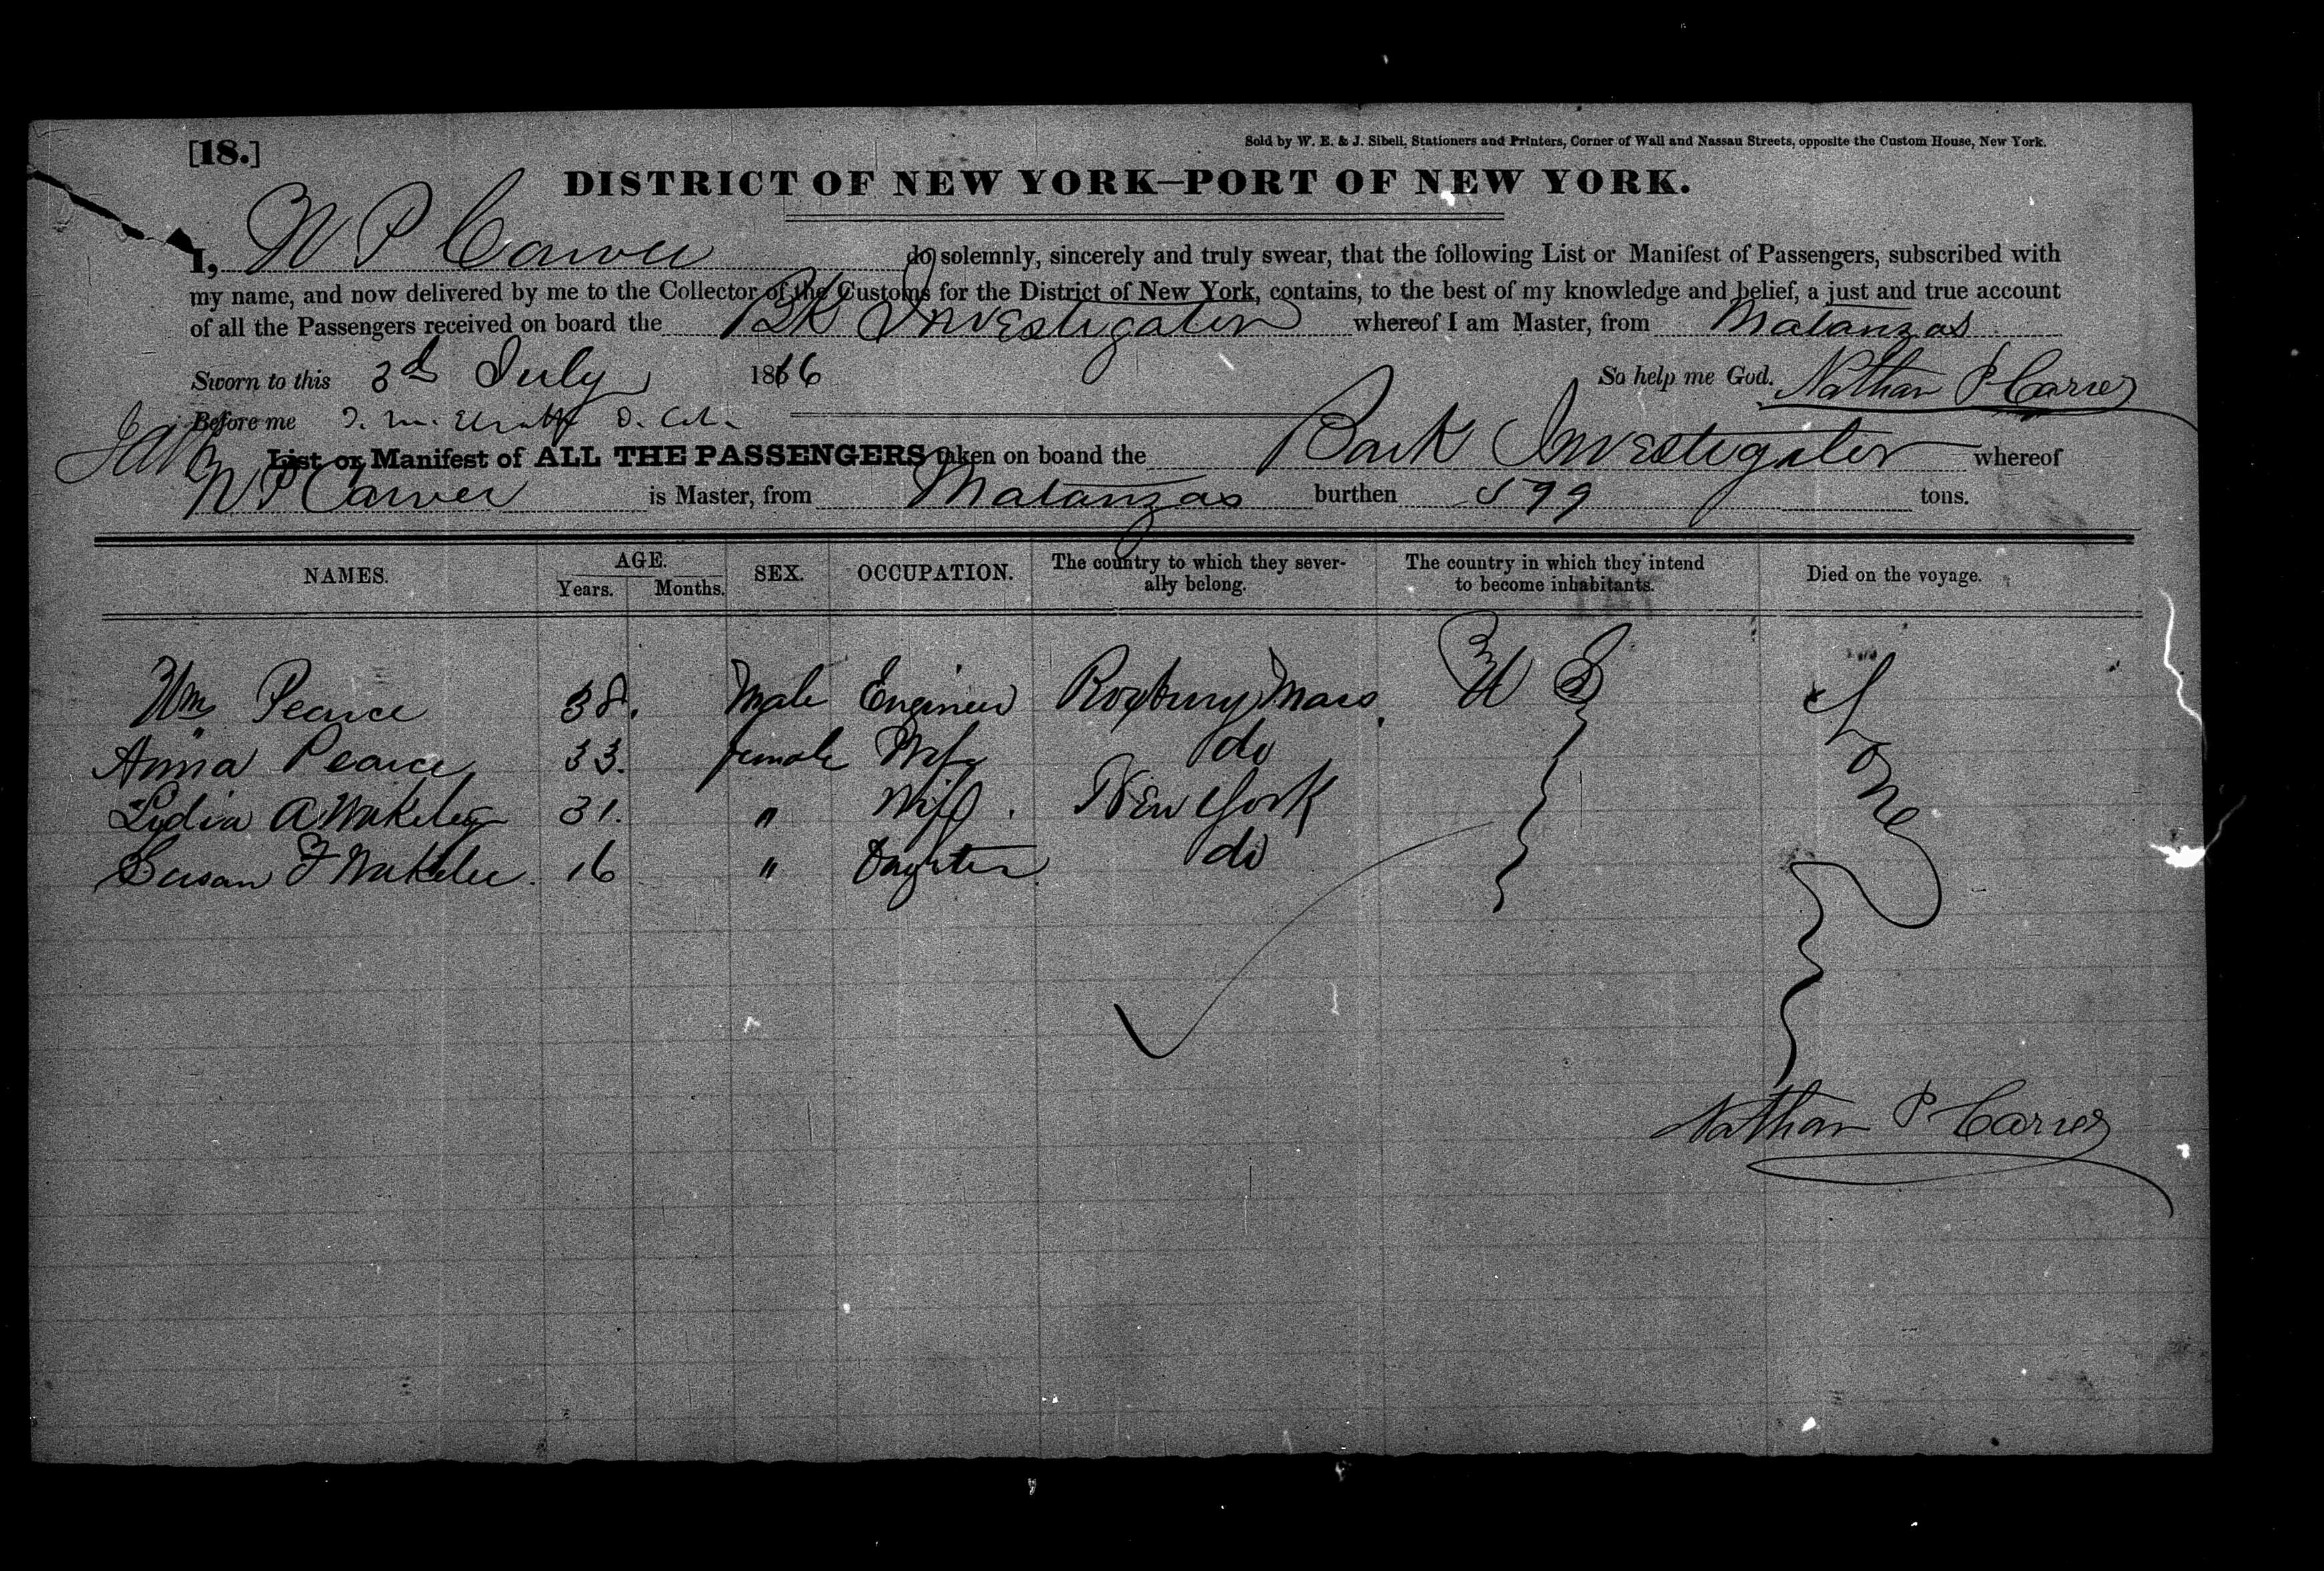 [18.]
Sold by W. E. & J. Sibell, Stationers and Printers, Corner of Wall and Nassau Streets, opposite the Custom House, New York.
DISTRICT OF NEW YORK—PORT OF NEW YORK.
I, N P Carver do solemnly, sincerely and truly swear, that the following List or Manifest of Passengers, subscribed with
my name, and now delivered by me to the Collector of the Customs for the District of New York, contains, to the best of my knowledge and belief, a just and true account
of all the Passengers received on board the BK Investigator whereof I am Master, from Matanzas
Sworn to this 3d July 1866 So help me God. Nathan P Carver
Before me
List or Manifest of ALL THE PASSENGERS taken on boand the Bark Investigator whereof
N P Carver is Master, from Matanzas burthen 599 tons.
NAMES. AGE. Years. Months. SEX. OCCUPATION. The country to which they severally belong. The country in which they intend to become inhabitants. Died on the voyage.
Wm Pearce 38. Male Engineer Roxbury Mass. U S None
Anna Pearce 33. female Wife do
Lydia A Wakeley 31. " Wife. New York
Susan F Wakelee. 16 " Daughter do
Nathan P Carver